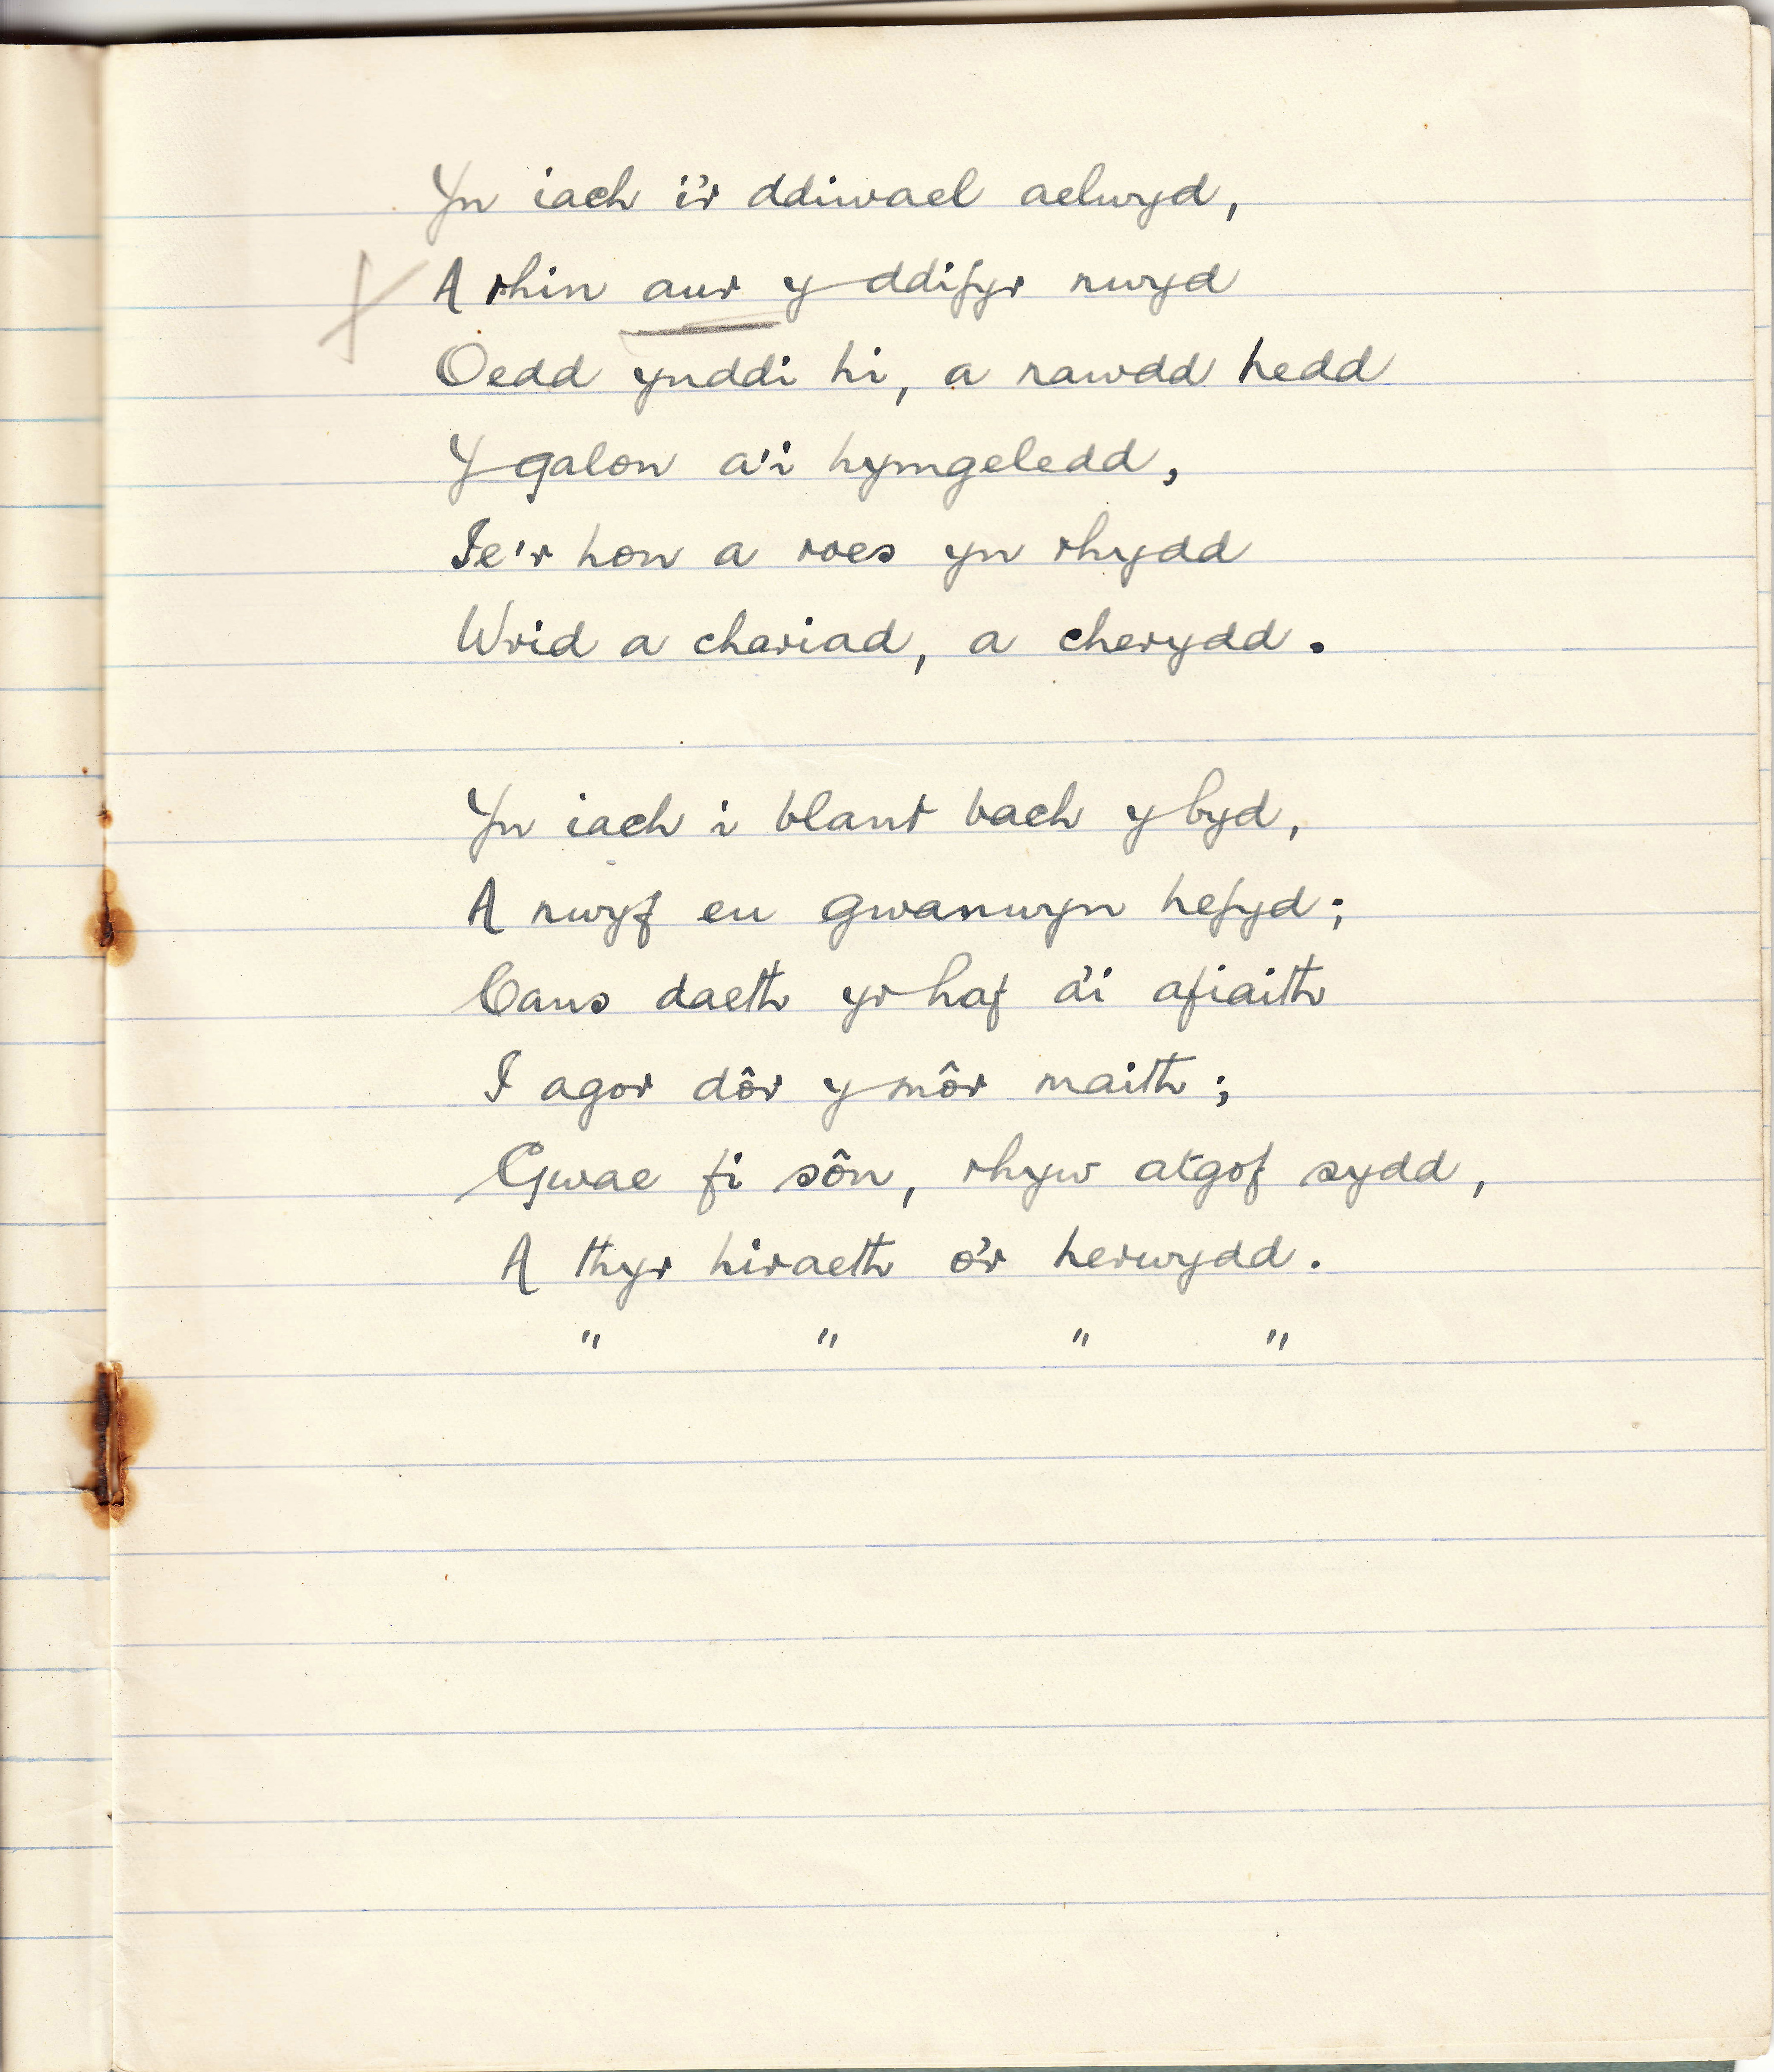 Yn iach i'r ddiwael aelwyd,
A rhin aur y ddifyr nwyd
Oedd ynddi hi, a nawdd hedd
Y galon a'i hymgeledd,
Ie'r hon a roes yn rhydd
Wrid a chariad, a cherydd.
Yn iach i blant bach y byd,
A nwyf eu gwanwyn hefyd;
Cans daeth yr haf a'i afiaith
I agor dôr y môr maith;
Gwae fi sôn, rhyw atgof sydd,
A thyr hiraeth o'r herwydd.
" " " "